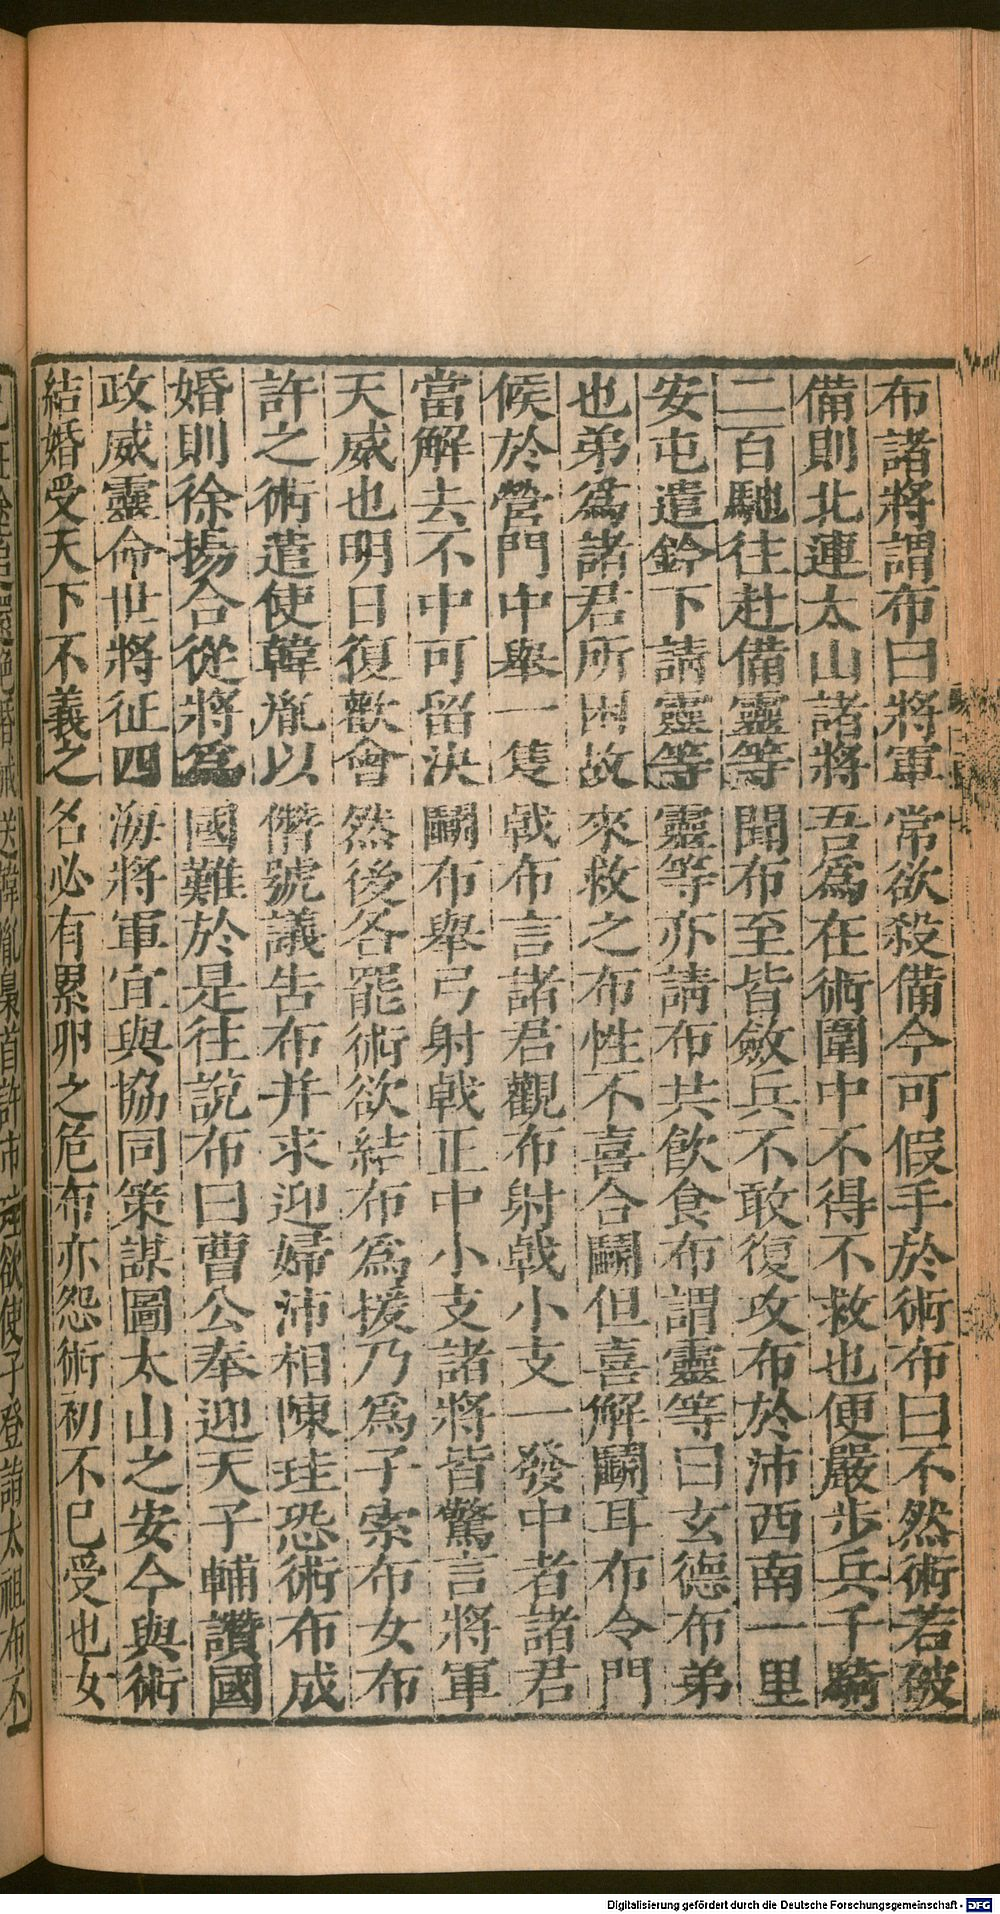 布諸將謂布曰將軍常欲殺備今可假手於術布曰不然術若破
備則北連太山諸將吾爲在術圍中不得不救也便嚴步兵千騎
二百馳往赴備靈等聞布至皆斂兵不敢復攻布於沛西南一里
安屯遣鈴下請靈等靈等亦請布共飲食布謂靈等曰玄德布弟
也弟爲諸君所困故來救之布性不喜合鬭但喜解鬭耳布令門
候於營門中舉一隻戟布言諸君觀布射戟小支一發中者諸君
當解去不中可留決鬭布舉弓射戟正中小支諸將皆驚言將軍
天威也明日復歡會然後各罷術欲結布爲援乃爲子索布女布
許之術遣使韓胤以僭號議告布并求迎婦沛相陳珪恐術布成
婚則徐揚合從將爲國難於是往說布曰曹公奉迎天子輔讚國
政威靈命世將征四海將軍宜與協同策謀圖太山之安今與術
結婚受天下不義之名必有累卵之危布亦怨術初不已受也女
已在塗追還絕婚械送韓胤梟首許市珪欲使子登詣太祖布不
Digitalisierung gefördert durch die Deutsche Forschungsgemeinschaft - DFG